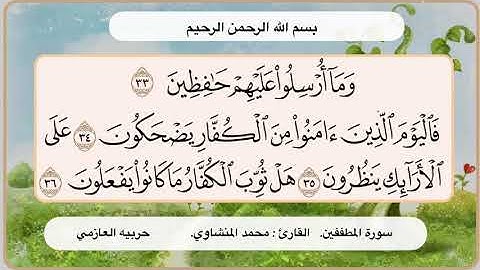 بسم الله الرحمن الرحيم
وَمَآ أُرْسِلُوا۟ عَلَيْهِمْ حَـٰفِظِينَ ٣٣
فَالْيَوْمَ الَّذِينَ ءَامَنُوا۟ مِنَ الْكُفَّارِ يَضْحَكُونَ ٣٤ عَلَى
الْأَرَآئِكِ يَنظُرُونَ ٣٥ هَلْ ثُوِّبَ الْكُفَّارُ مَا كَانُوا۟ يَفْعَلُونَ ٣٦
سورة المطففين. القارئ : محمد المنشاوي. حربيه العازمي